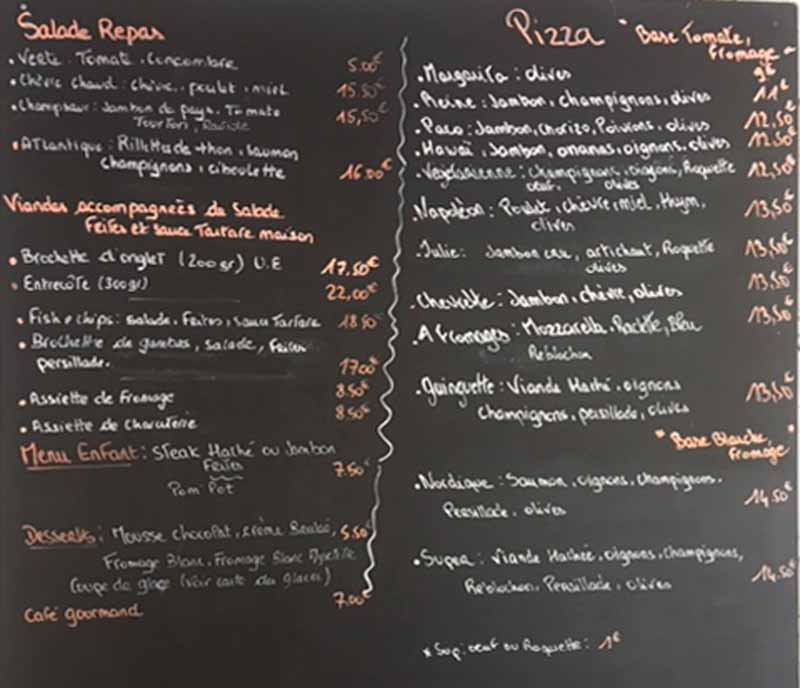 Salade Repas
• Verte. Tomate. Concombre 5.00€
• Chèvre Chaud: chèvre, poulet, miel 15.50€
• Champsaur: Jambon de pays. Tomate 15,50€
Tourton, Raviole
• Atlantique: Rillettes de thon, saumon
champignons, ciboulette 16.00€
Viandes accompagnées de Salade
Frites et sauce Tartare maison
• Brochette d'onglet (200gr) U.E 17.50€
• Entrecôte (300gr) 22,00€
• Fish & chips: salade, Frites, sauce Tartare 18.50€
• Brochette de gambas, salade, frites
persillade. 17.00€
• Assiette de Fromage 8.50€
• Assiette de Charcuterie 8.50€
Menu Enfant: Steak Haché ou Jambon
Frites 7.50€
Pom Pot
Desserts: Mousse chocolat, crème Brulée, 5.50€
Fromage Blanc, Fromage Blanc Myrtille
Coupe de glace (voir carte des glaces)
Café gourmand 7.00€
Pizza "Base Tomate,
fromage"
• Margarita: olives 9€
• Reine: Jambon, champignons, olives 11€
• Paco: Jambon, Chorizo, Poivrons, olives 12.50€
• Hawaï, Jambon, ananas, oignons, olives 12.50€
• Végétarienne: Champignons, oignons, Roquette 12,50€
oeuf, olives
• Napoléon: Poulet, chèvre, miel, Thym, 13,50€
olives
• Julie: Jambon cru, artichaut, Roquette 13,50€
olives
• Chevrette: Jambon, chèvre, olives 13.50€
• 4 fromages: Mozzarella, Raclette, Bleu 13,50€
Reblochon
• Guinguette: Viande Haché, oignons 13,50€
champignons, persillade, olives
"Base Blanche,
fromage"
• Nordique: Saumon, oignons, champignons, 14,50€
Persillade, olives
• Supra: Viande Hachée, oignons, champignons, 14.50€
Reblochon, Persillade, olives
* Sup: oeuf ou Roquette: 1€